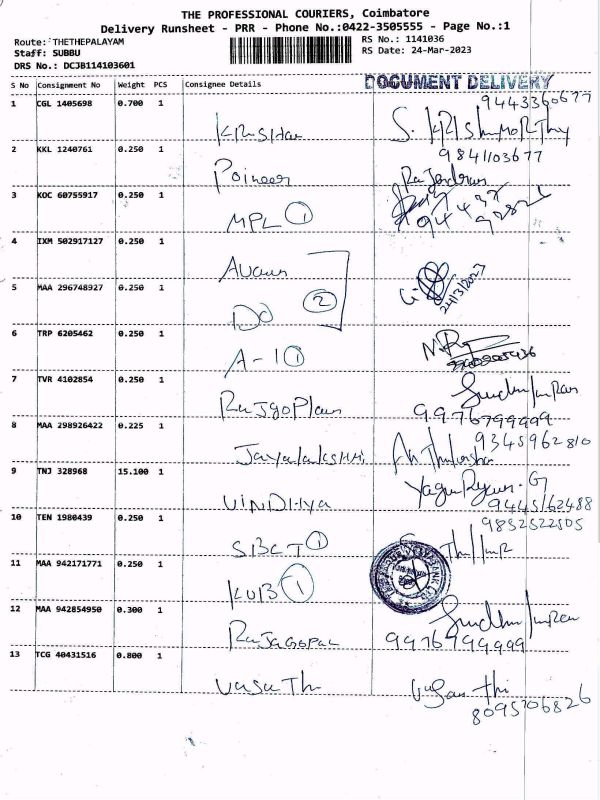 THE PROFESSIONAL COURIERS, Coimbatore
Delivery Runsheet - PRR - Phone No.:0422-3505555 - Page No.:1
Route: THETHEPALAYAM
RS No.: 1141036
Staff: SUBBU
RS Date: 24-Mar-2023
DRS No.: DCJB114103601
DOCUMENT DELIVERY
S No Consignment No Weight PCS Consignee Details
9443360677
1 CGL 1405698 0.700 1
KRISHna S. KRISHNAMORTHY
9841103677
2 KKL 1240761 0.250 1
Poineer Rajendran
3 KOC 60755917 0.250 1
MPL 1
4 IXM 502917127 0.250 1
5 MAA 296748927 0.250 1
DO 2 24/3/2023
6 TRP 6205462 0.250 1
A-1 1
7 TVR 4102854 0.250 1
9976799999
8 MAA 298926422 0.225 1
9345962810
Jayalakshmi
9 TNJ 328968 15.100 1
VINDHya
9445162488
10 TEN 1980439 0.250 1
9832522505
SBCT 1
11 MAA 942171771 0.250 1
KUB 1
12 MAA 942854950 0.300 1
RAJAGOPAL 9976799999
13 TCG 40431516 0.800 1
Vasathi Vasanthi
8095706826